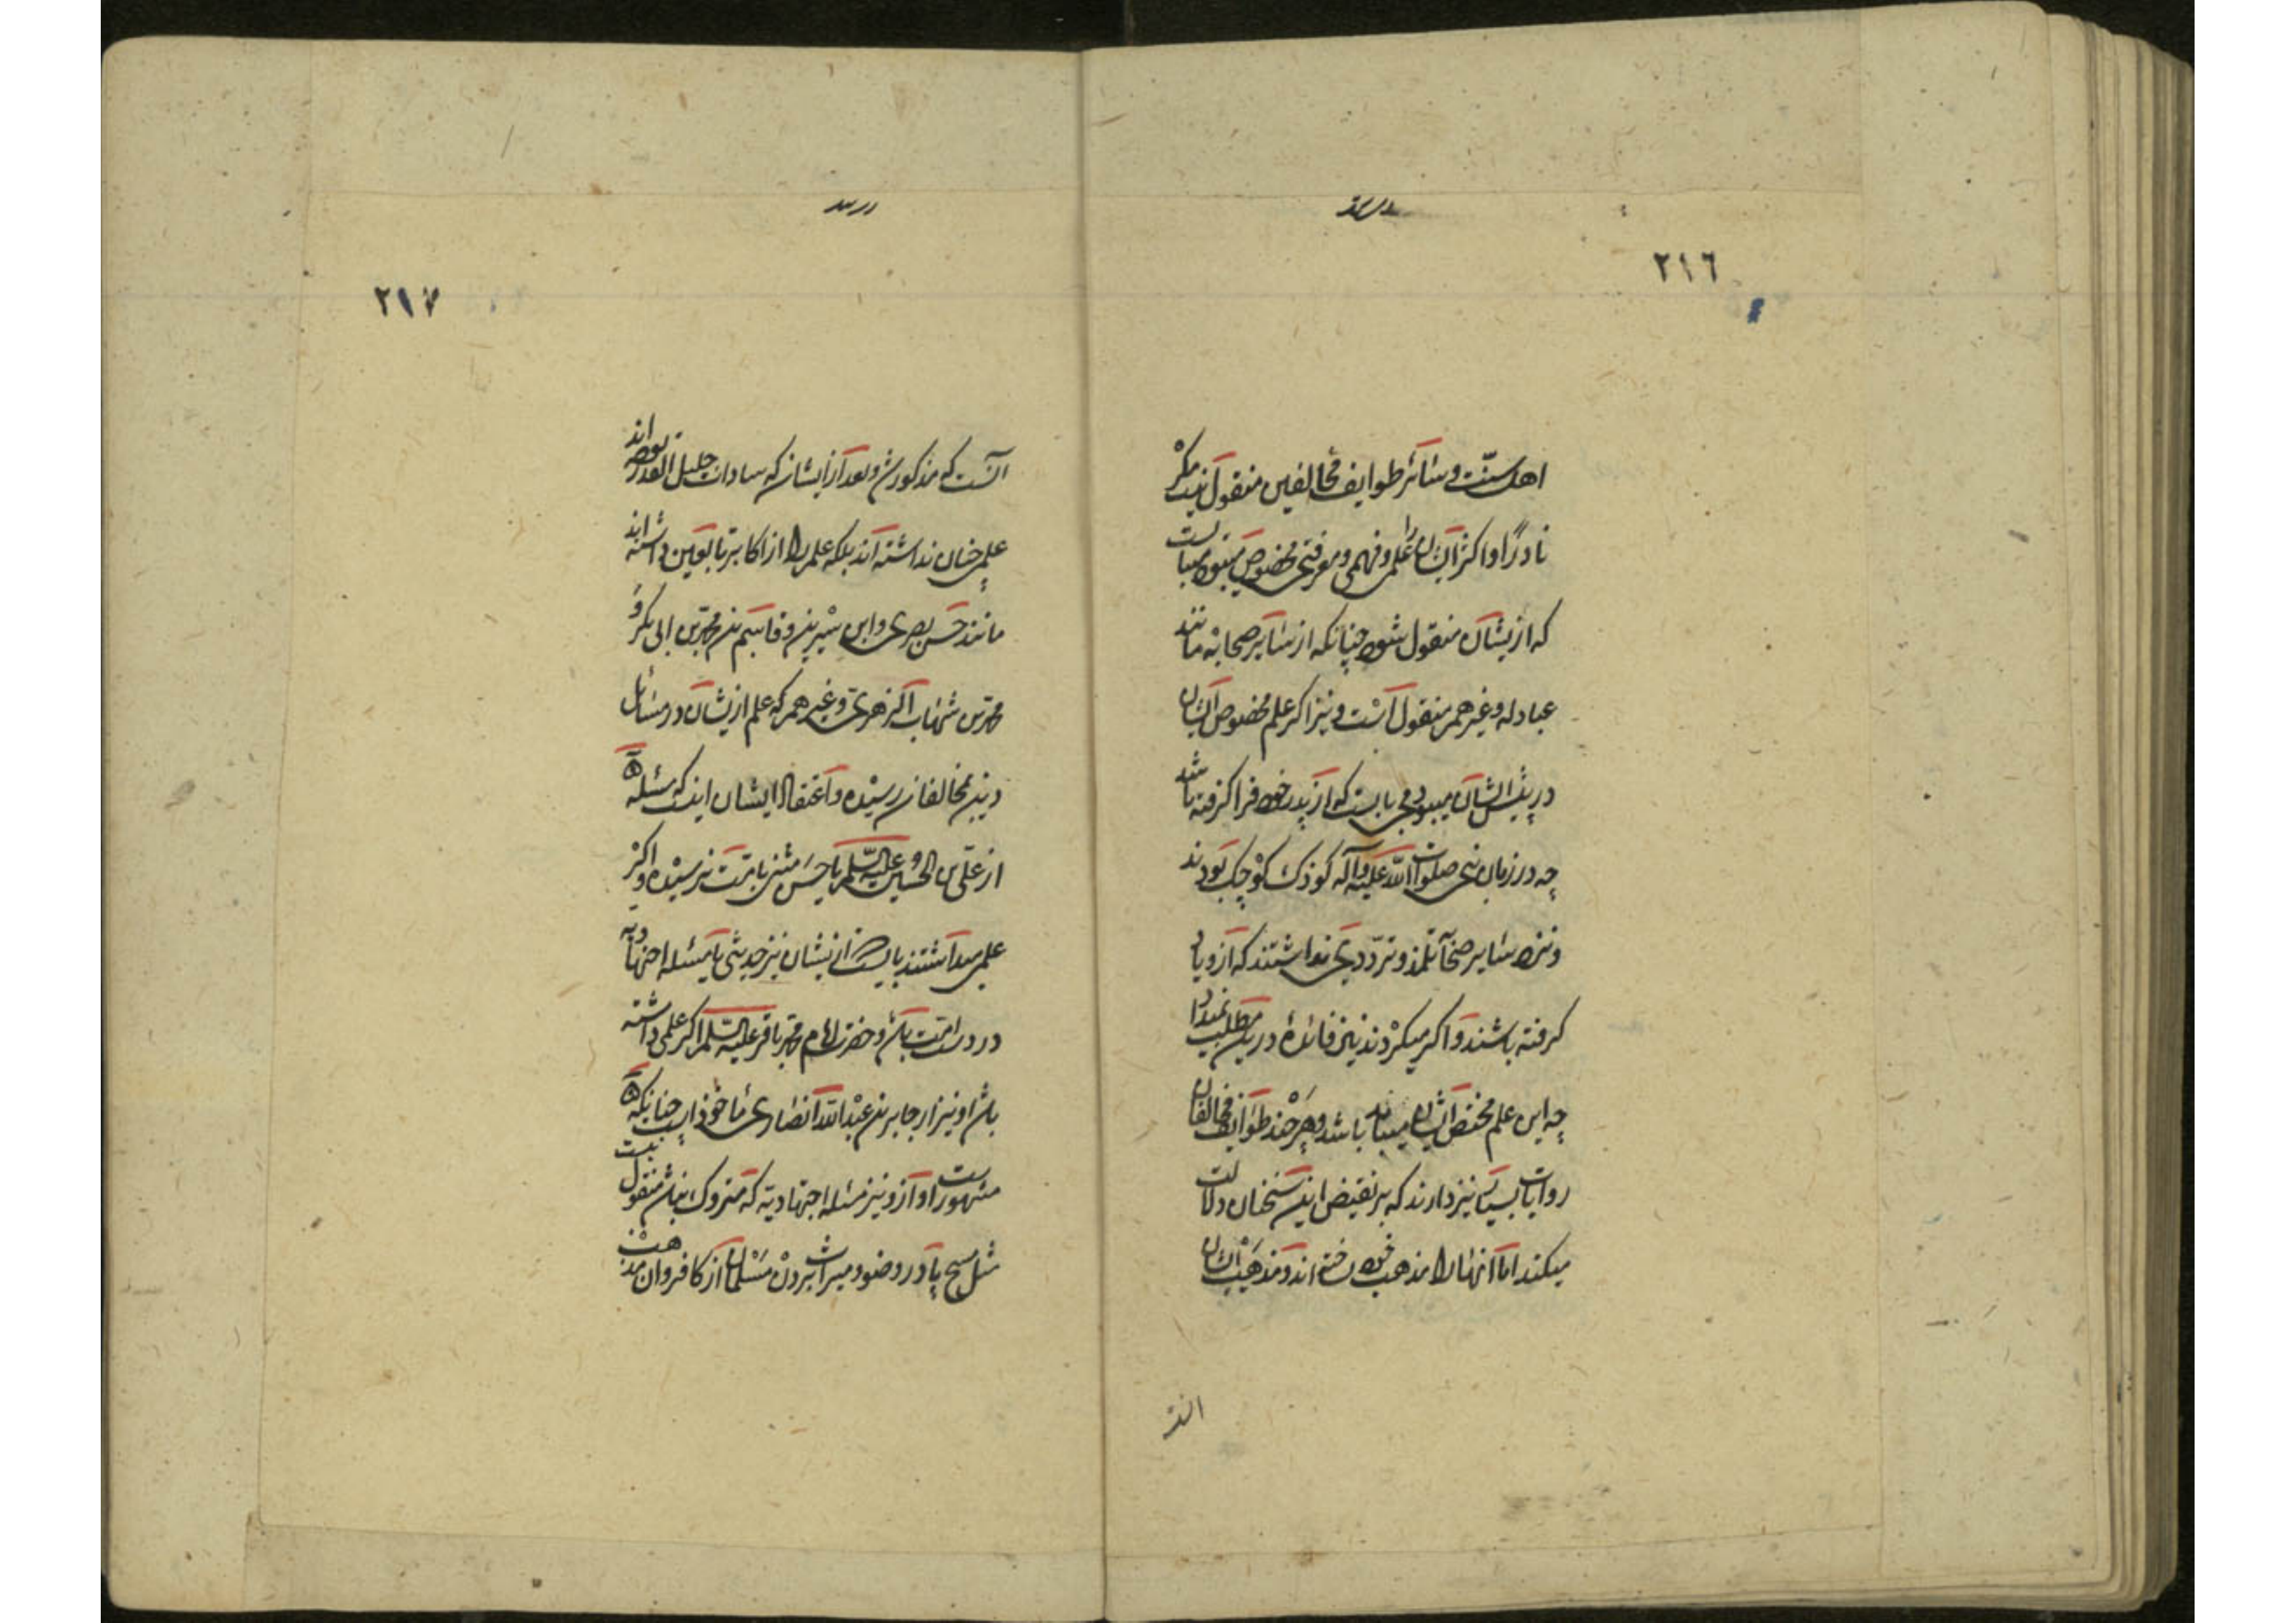 ٢١٦
اهل سنّت و سائر طوایف مخالفین منقول نیست مگر
نادرًا و اگر ایشانرا علمی و فهمی و معرفتی مخصوص میبود میبایست
که ازیشان منقول شود چنانکه از سایر صحابه مانند
عبادله و غیرهم منقول است و نیز اگر علم مخصوص ایشان
در پیش ایشان میبود می بایست که از پدر خود فرا گرفته باشند
چه در زمان نبی صلوات الله علیه و آله کوذک کوچک بودند
و نزد سایر صحابه تلمذ و تردّدی نداشتند که ازو یاد
گرفته باشند و اگر میکردند نیز فائدهٔ درین مطلب نمیداد
چه این علم مختص ایشان میباید باشد و هر چند طوایف مخالفان
روایات بسیار نیز دارند که بر نقیض این سخنان دلالت
میکند اما آنها را مذهب خود ساخته اند و مذهب ایشان
٢١٧
آنست که مذکور شد و بعد از ایشان که سادات جلیل القدر بوده اند
علمی چنان نداشته اند بلکه علم را از اکابر تابعین داشته اند
مانند حسن بصری و ابن سیرین و قاسم بن محمد بن ابی بکر و
محمد بن شهاب الزهری و غیرهم که علم ازیشان در مسائل
دین بمخالفان رسیده و اعتقاد ایشان اینکه مسئله
از علی بن الحسین علیه السلم یا حسن مثنی بامت نرسیده و اگر
علمی میداشتند بایست ازیشان نیز حدیثی یا مسئله اجتهادیه
در دست امت باشد و حضرت امام محمد باقر علیه السلم اگر علمی داشته
باشد او نیز از جابر بن عبد الله انصاری ماخوذ است چنانکه
مشهور است و ازو نیز مسئله اجتهادیه که متروک نباشد منقول نیست
مثل مسح پا در وضو و میراث بردن مسلمان از کافر و ان مذهب